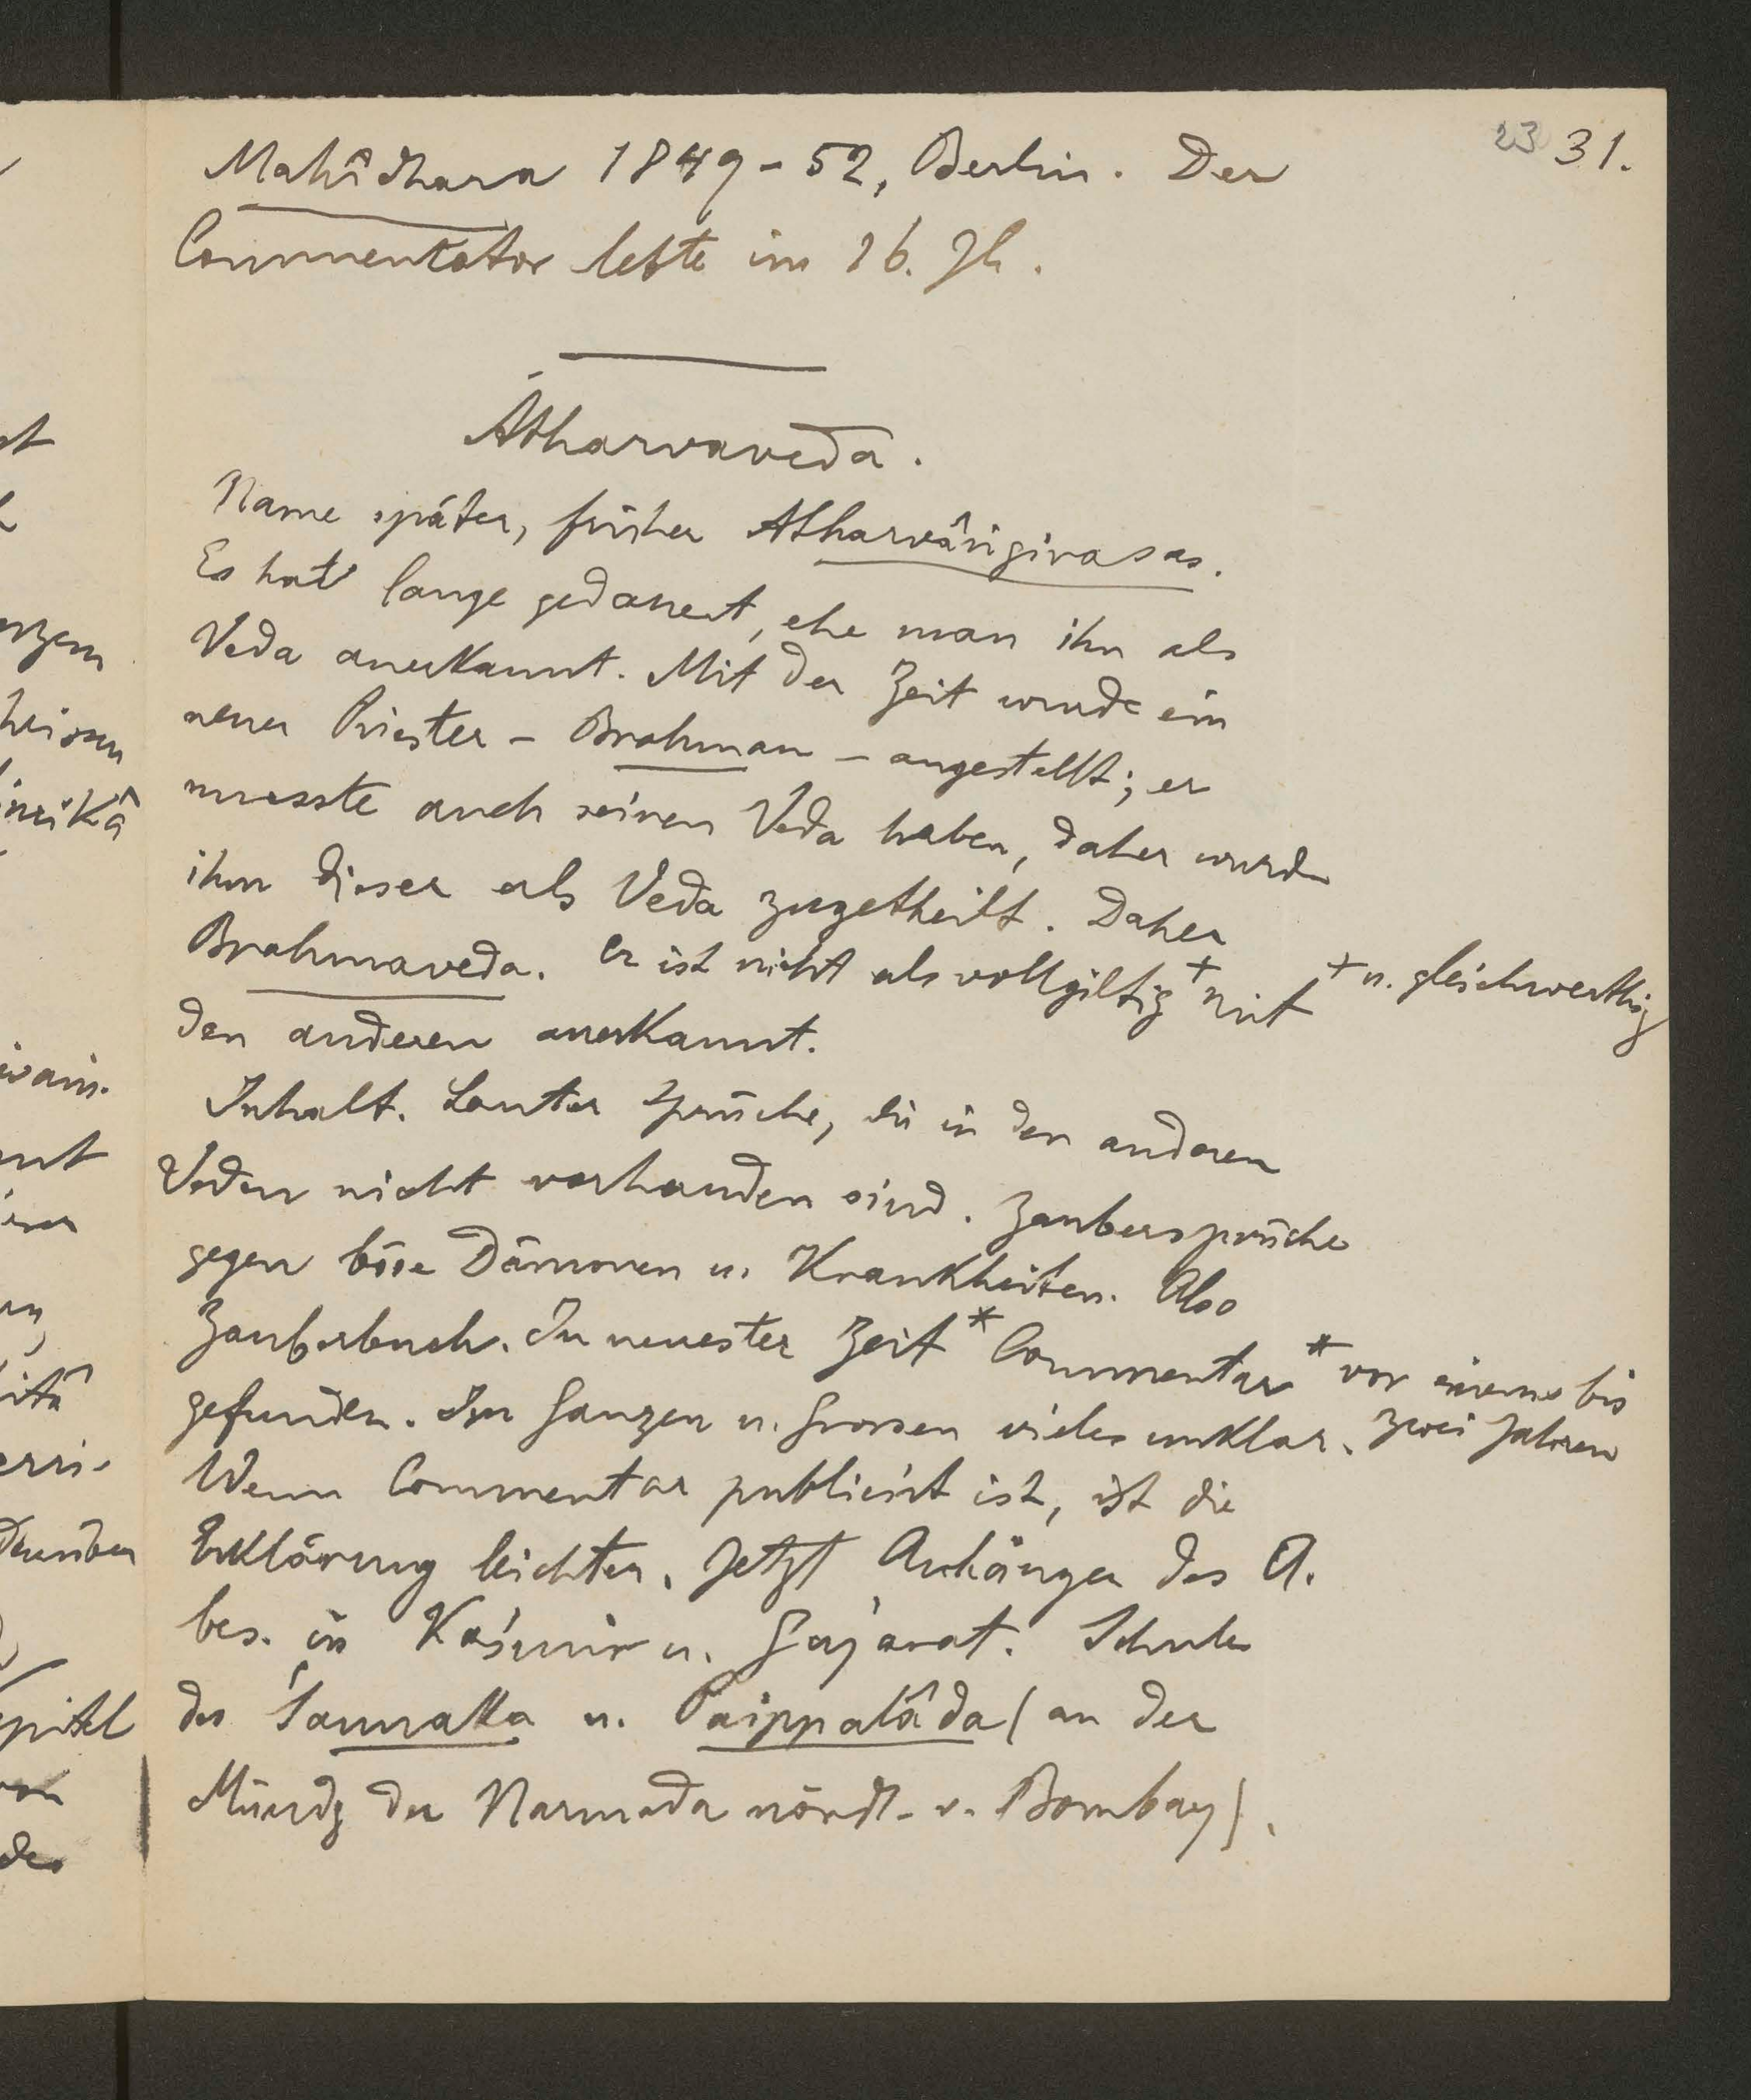 23 31.
Mahîdhara 1849-52, Berlin. Der
Commentator lebte im 16. Jh.
Atharvaveda.
Name später, früher Atharvângirasas.
Es hat lange gedauert, ehe man ihn als
Veda anerkannt. Mit der Zeit wurde ein
neuer Priester – Brahman – angestellt; er
musste auch seinen Veda haben, daher wurde
ihm dieser als Veda zugetheilt. Daher
Brahmaveda. Er ist nicht als vollgiltig + mit
+ u. gleichwerthig
den anderen anerkannt.
Inhalt. Lauter Sprüche, die in den anderen
Veden nicht vorhanden sind. Zaubersprüche
gegen böse Dämonen u. Krankheiten. Also
Zauberbuch. In neuester Zeit * Commentar
* vor einem bis
zwei Jahren
gefunden. Im Ganzen u. Grossen vieles unklar.
Wenn Commentar publicirt ist, ist die
Erklärung leichter. Jetzt Anhänger des A.
bes. in Kaśmir u. Gujarat. Schule
des Śaunaka u. Paippalâda (an der
Mündg der Narmada nördl. v. Bombay).
ant
heissen
pitel
des